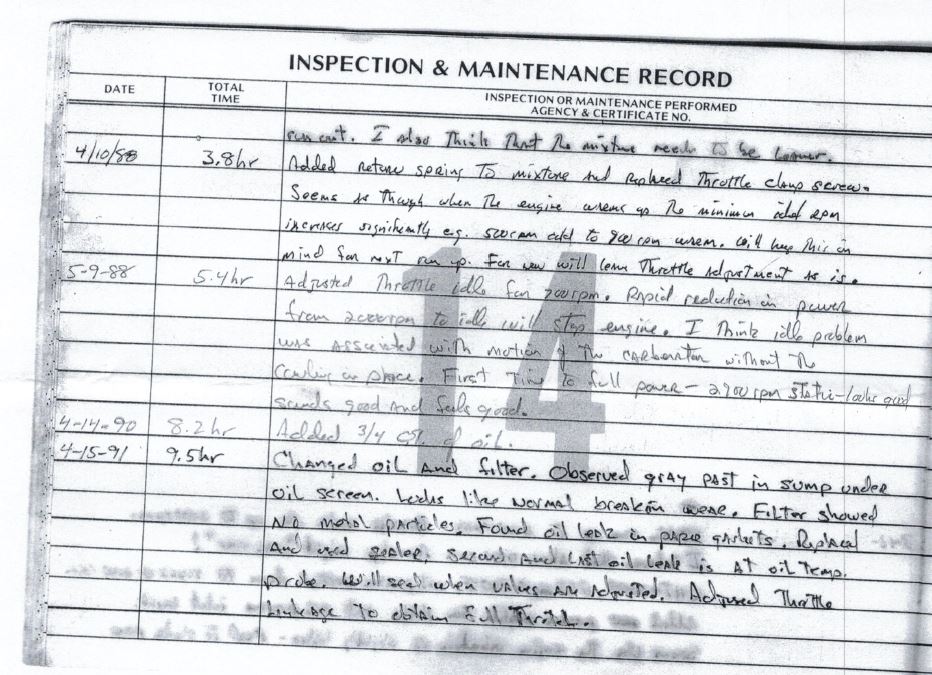 INSPECTION & MAINTENANCE RECORD
DATE TOTAL TIME INSPECTION OR MAINTENANCE PERFORMED AGENCY & CERTIFICATE NO.
run out. I also Think That The mixture needs to be
4/10/88 3.8hr Added return spring To mixture and replaced Throttle clamp screw.
Seems as though when The engine warms up The minimum idle rpm
increases significantly e.g. 500rpm cold to 900rpm warm. Will keep this in
mind for next run up. For now will leave Throttle adjustment as is.
5-9-88 5.4hr Adjusted Throttle idle for 700rpm. Rapid reduction in power
from 2000rpm to idle will stop engine. I Think idle problem
was associated with motion of The carberator without The
cowling in place. First Time to full power - 2900rpm static - looks good
sounds good and feels good.
4-14-90 8.2hr Added 3/4 of oil.
4-15-91 9.5hr Changed oil And filter. Observed gray past in sump under
oil screen. Looks like normal breakin wear. Filter showed
No metal particles. Found oil leak in paper gaskets. Replaced
And used sealer. Second and last oil leak is AT oil temp.
probe. Will seal when valves are Adjusted. Adjused Throttle
Linkage To obtain full Throttle.
14